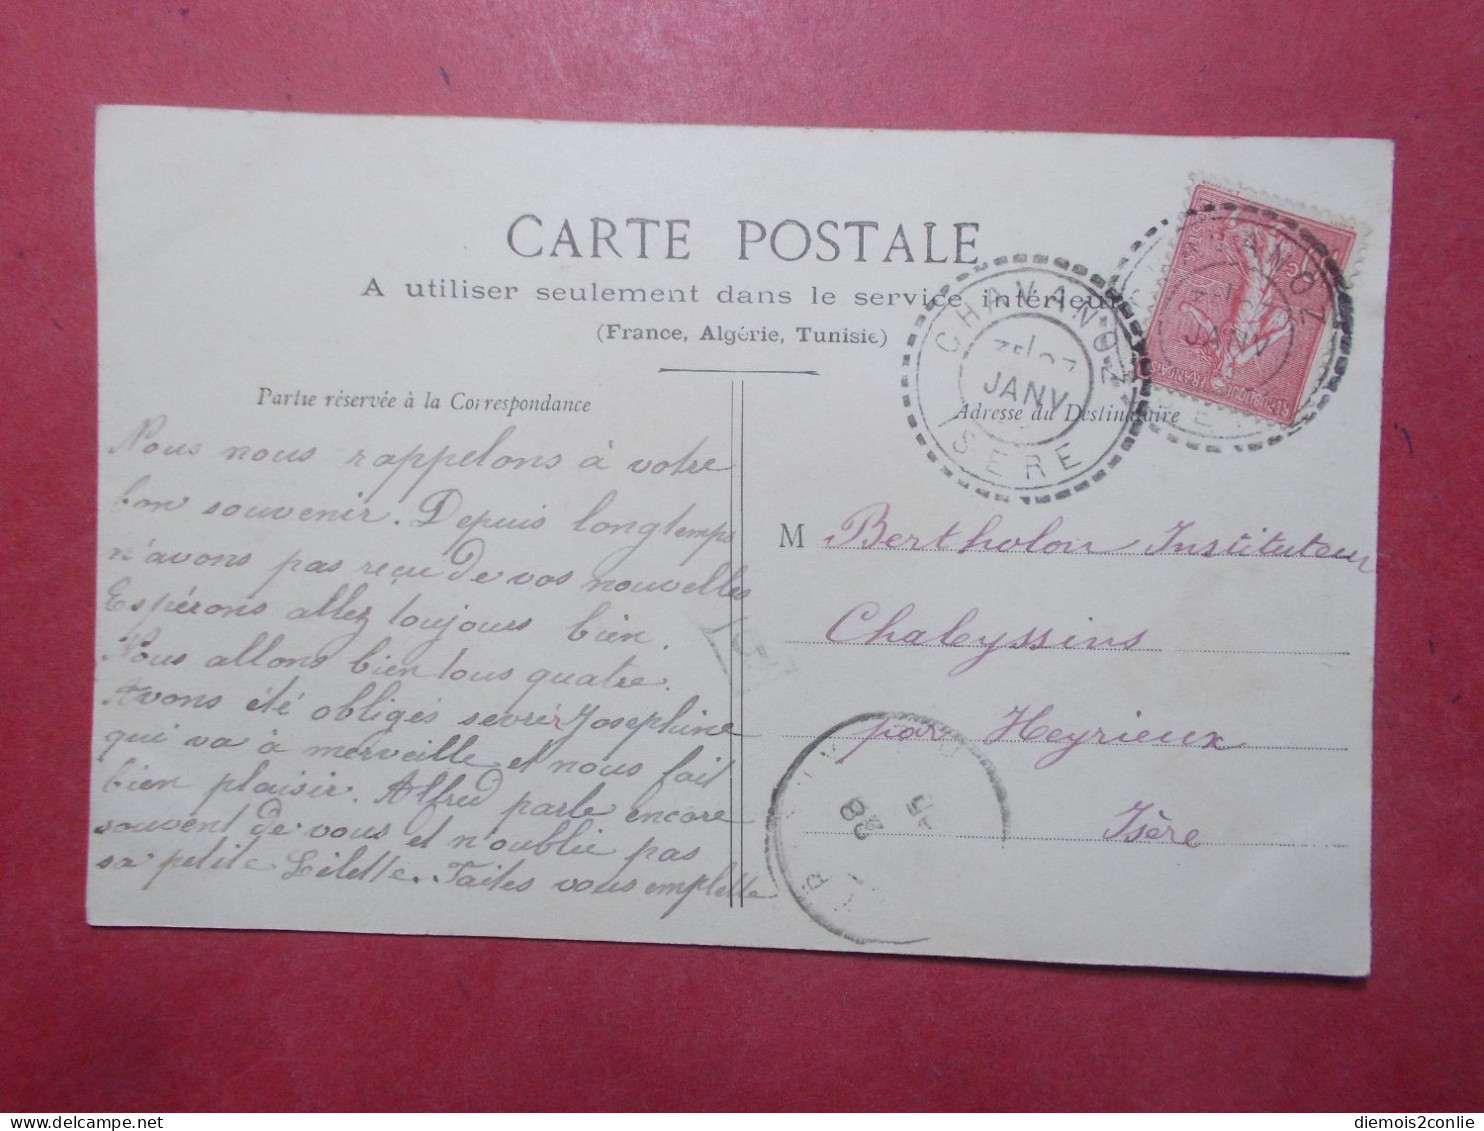 CARTE POSTALE
A utiliser seulement dans le service intérieur
(France, Algérie, Tunisie)
Partie réservée à la Correspondance
Adresse du Destinataire
CHAVANOZ
JANV
ISERE
Nous nous rappelons à votre
bon souvenir. Depuis longtemps
n'avons pas reçu de vos nouvelles
Espérons allez toujours bien.
Nous allons bien tous quatre.
Avons été obligés sevrer Josephine
qui va à merveille et nous fait
bien plaisir. Alfred parle encore
souvent de vous et n'oublie pas
sa petite Lilette. Faites vous emplette
M Bertholon Instituteur
Chaleyssins
par Heyrieux
Isère
diemois2conlie